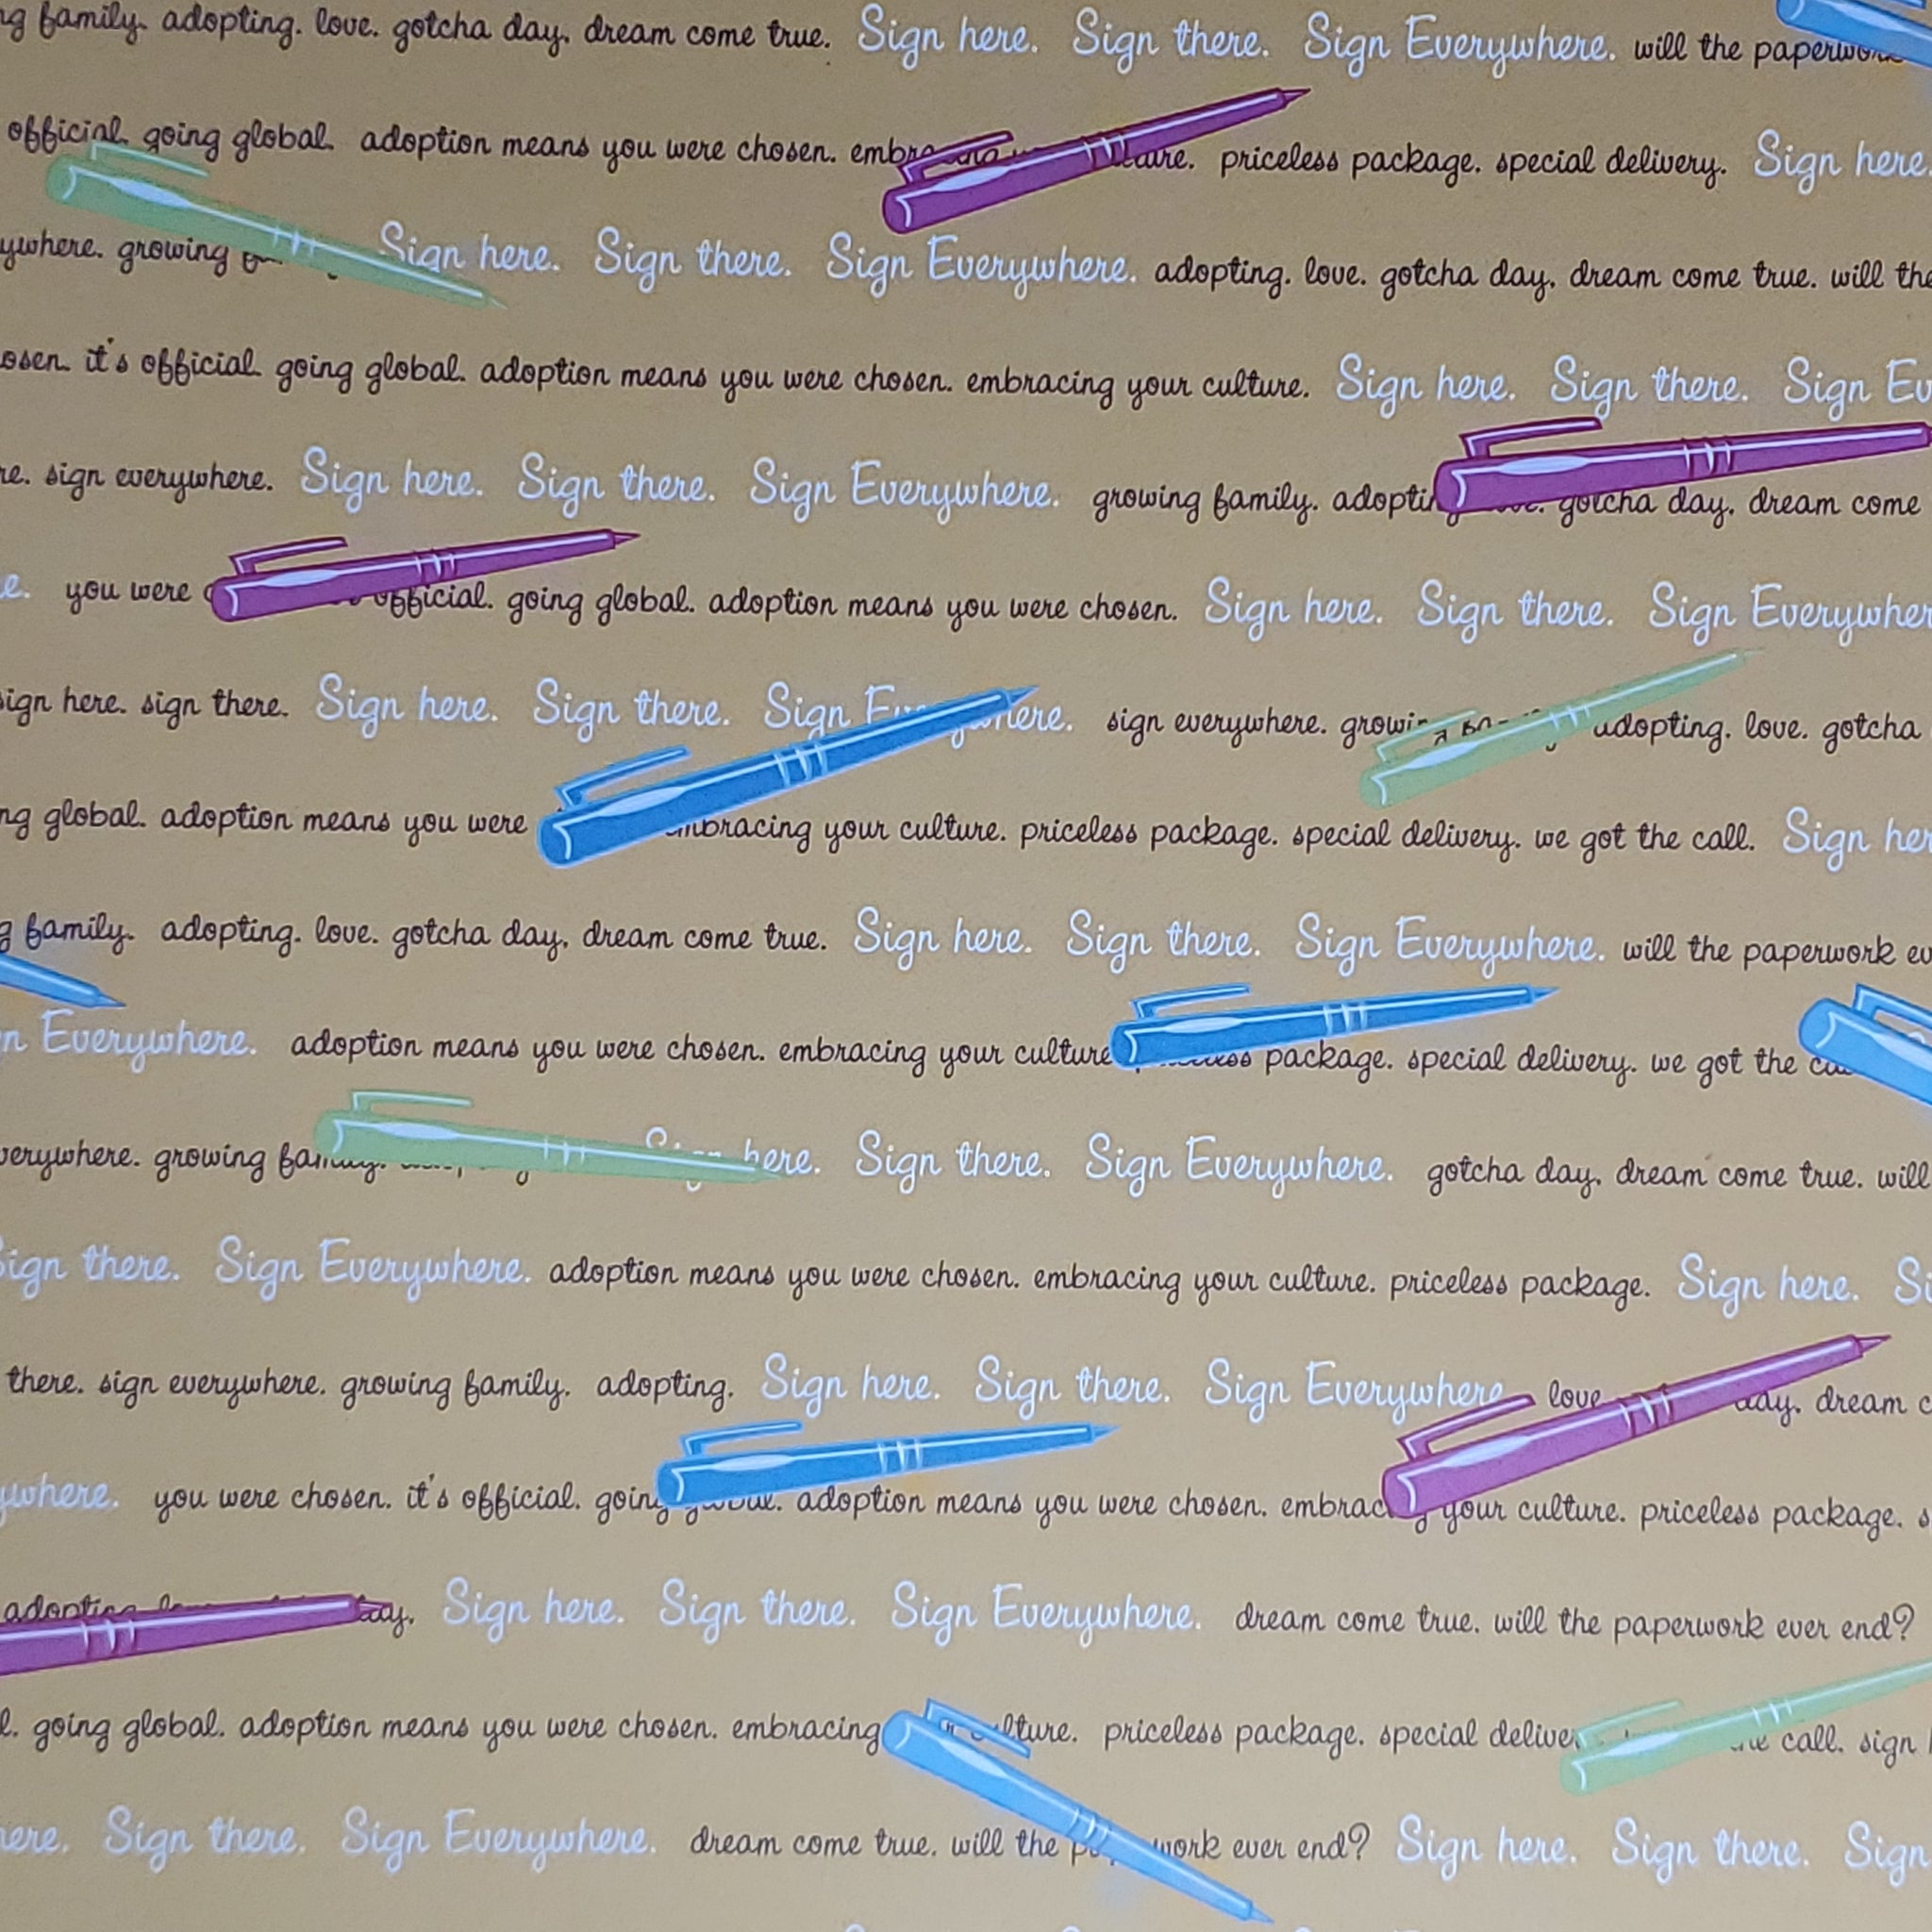 family. adopting. love. gotcha day. dream come true. Sign here. Sign there. Sign Everywhere. will the
official. going global. adoption means you were chosen. priceless package. special delivery. Sign here.
growing Sign here. Sign there. Sign Everywhere. adopting. love. gotcha day. dream come true. will the
it's official. going global. adoption means you were chosen. embracing your culture. Sign here. Sign there. Sign
sign everywhere. Sign here. Sign there. Sign Everywhere. growing family. gotcha day. dream come
you were official. going global. adoption means you were chosen. Sign here. Sign there. Sign
sign here. sign there. Sign here. Sign there. Sign sign everywhere. adopting. love. gotcha
global. adoption means you were embracing your culture. priceless package. special delivery. we got the call. Sign
family. adopting. love. gotcha day. dream come true. Sign here. Sign there. Sign Everywhere. will the paperwork
Everywhere. adoption means you were chosen. embracing your culture package. special delivery. we got the
growing here. Sign there. Sign Everywhere. gotcha day. dream come true. will
Sign there. Sign Everywhere. adoption means you were chosen. embracing your culture. priceless package. Sign here.
there. sign everywhere. growing family. adopting. Sign here. Sign there. Sign Everywhere love day. dream
you were chosen. it's official. going adoption means you were chosen. your culture. priceless package.
Sign here. Sign there. Sign Everywhere. dream come true. will the paperwork ever end?
going global. adoption means you were chosen. embracing priceless package. special call. sign
Sign there. Sign Everywhere. dream come true. will the ever end? Sign here. Sign there. Sign